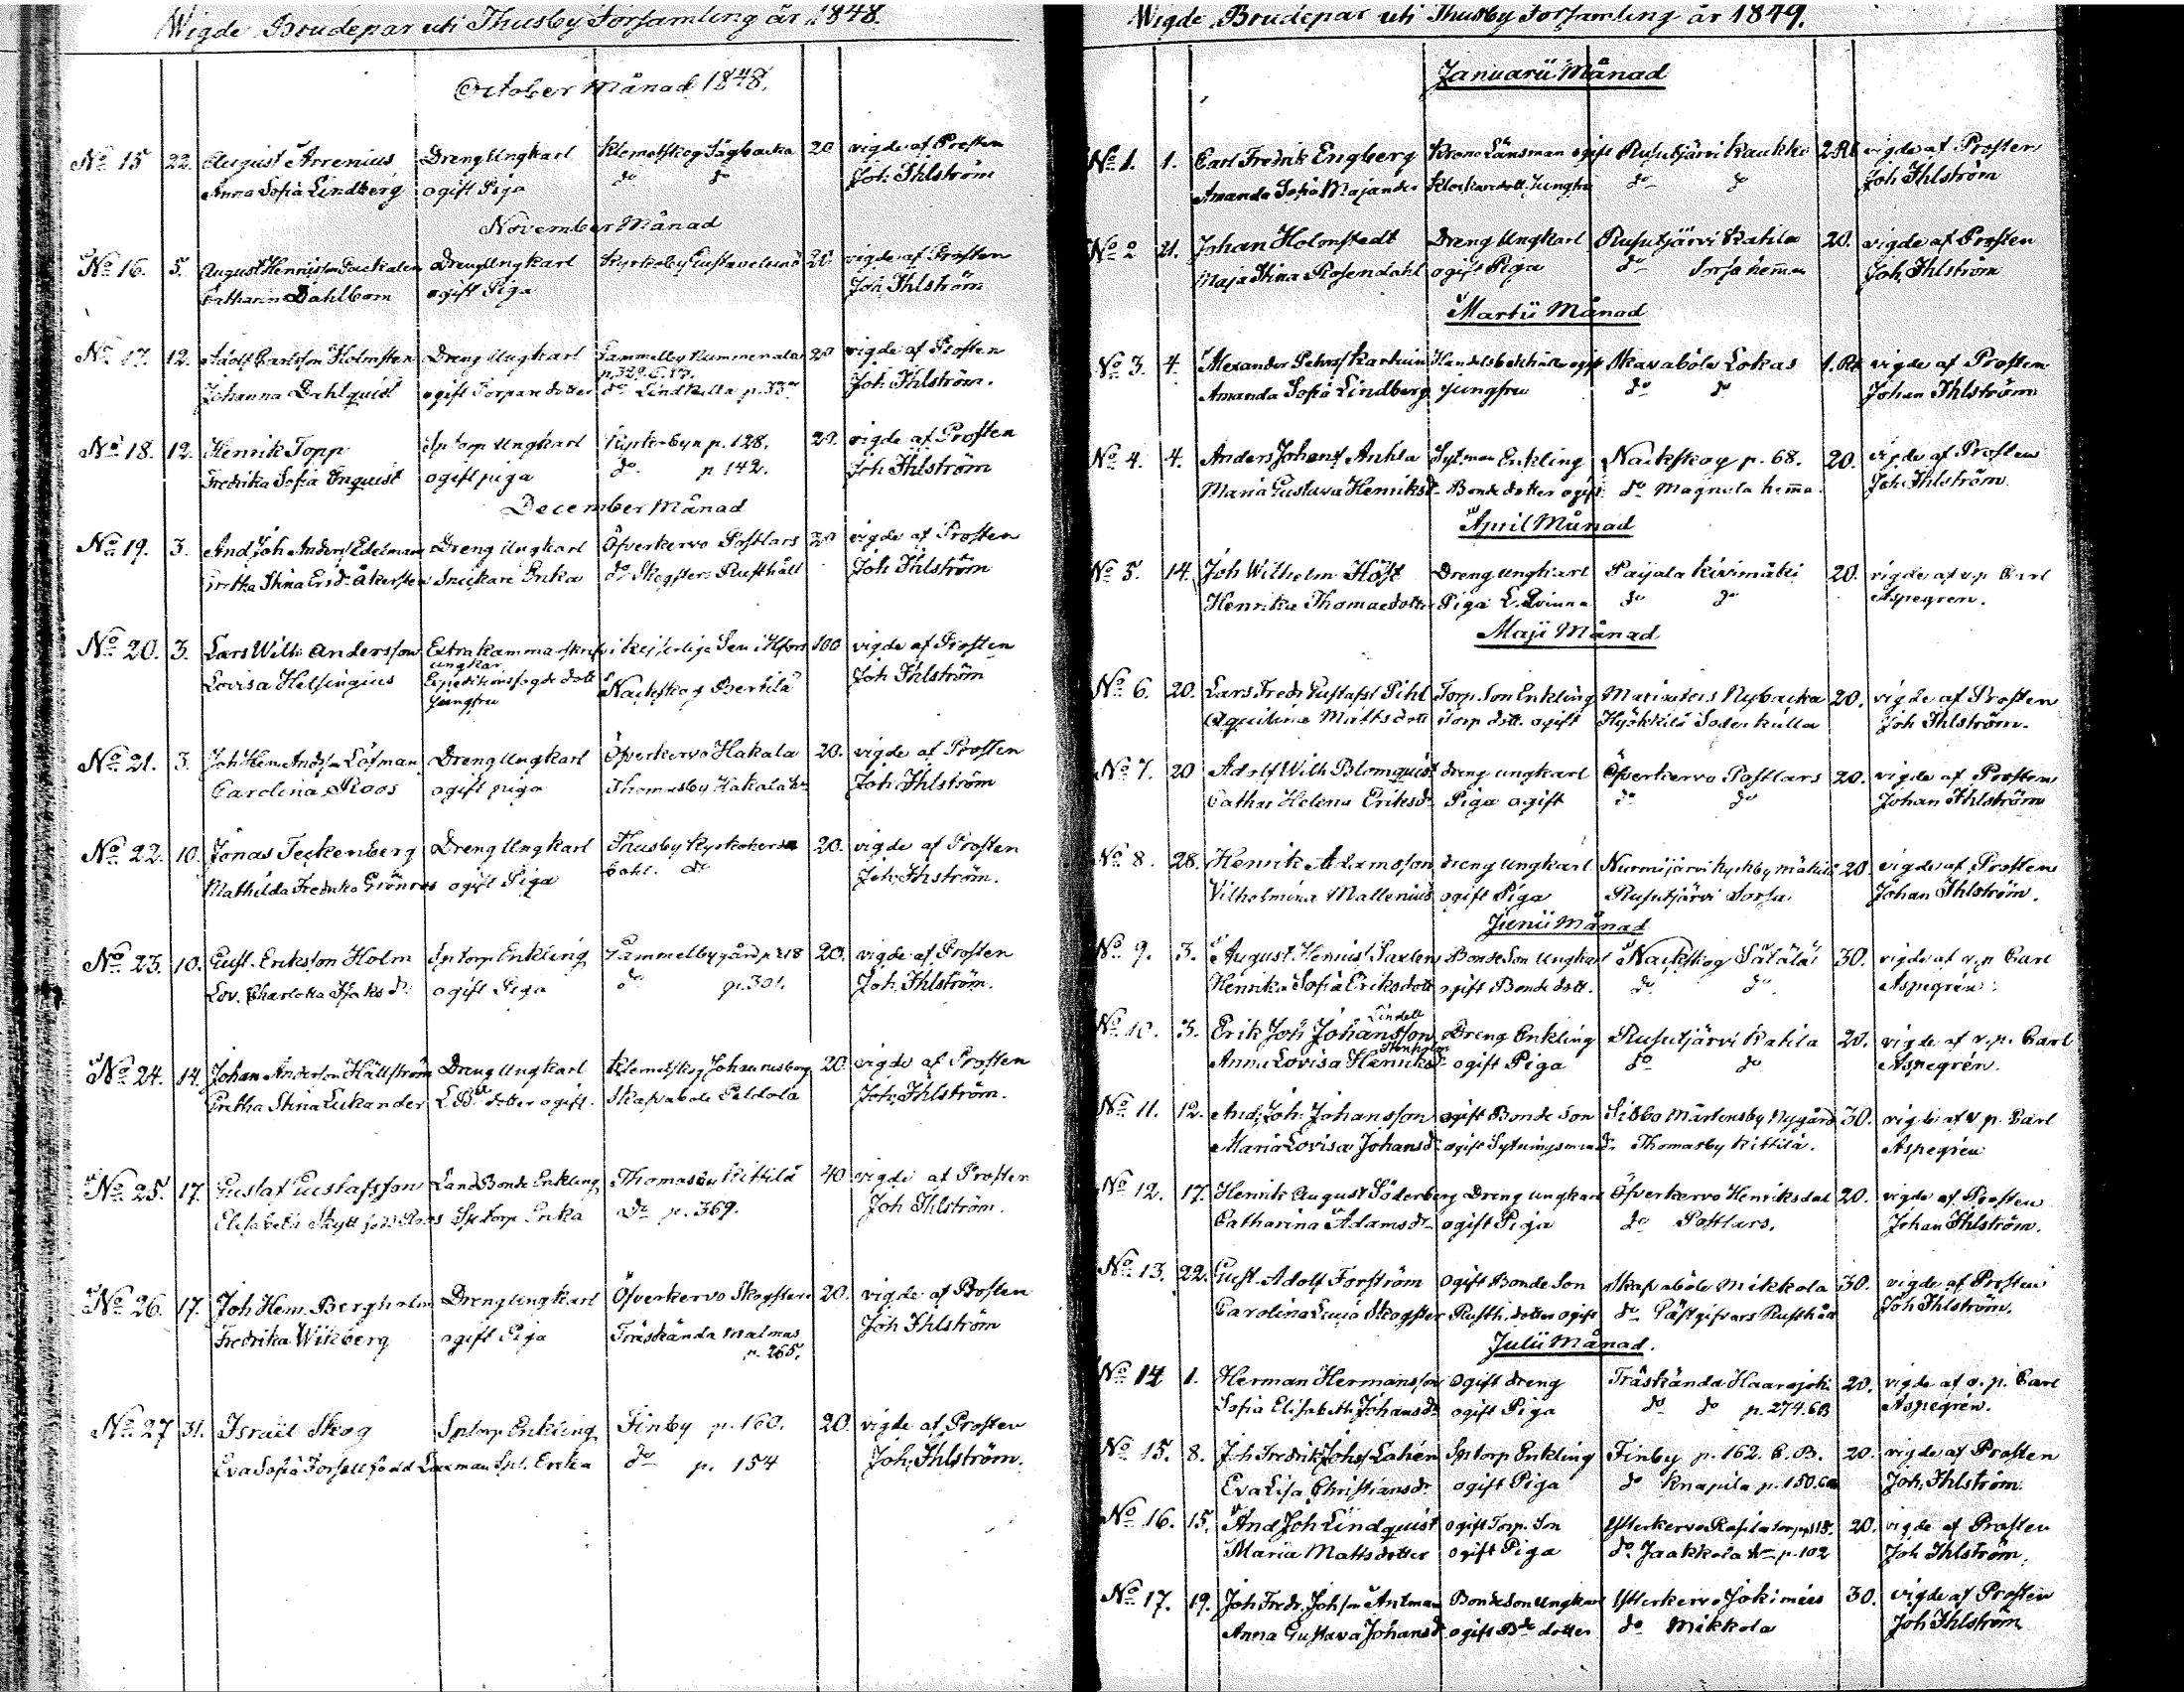 Wigde Brudepar uti Thusby Församling år 1848.
October Månad 1848.
No 15 22. August Arrenius Dreng Ungkarl Klemetskog Sågbacka 20 vigde af Prosten
Anna Sofia Lindberg ogift Piga do do Joh. Ihlström
November Månad
No 16. 5. August Dreng Ungkarl Kyrkoby 20 vigde af Prosten
Catharina Dahlbom ogift Piga Joh. Ihlström
No 17. 12. Adolf Carlsson Holmsten Dreng Ungkarl Gammelby Nummenala 20 vigde af Prosten
p. 329. C. B.
Johanna Dahlquist ogift Torpardotter do Lindkulla p. 33 Joh. Ihlström.
No 18. 12. Henrik Topp Sp torp Ungkarl Kyrkobyn p. 128. 20. vigde af Prosten
Fredrika Sofia Enquist ogift piga do p 142. Joh Ihlström
December Månad
No 19. 3. And Joh Anders Edelman Dreng Ungkarl Öfverkervo Postlars 20 vigde af Prosten
Gretha Stina Ersd. Åkersten Snickare Enka do Skogsters Rusthåll Joh Ihlström
No 20. 3. Lars Wilh. Andersson Extra kammarskrif i kejserliga Sen i Hfors 100 vigde af Prosten
ungkar
Lovisa Helsingius Expeditionsfogde dott Nackskog Bertila Joh Ihlström
Jungfru
No 21. 3. Joh Hen. Andsson Löfman Dreng Ungkarl Öfverkervo Hakala 20. vigde af Prosten
Carolina Roos ogift piga Thomasby Hakala Joh Ihlström
No 22. 10. Jonas Teckenberg Dreng Ungkarl Thusby Kyrkoherde 20. vigde af Prosten
Mathilda Fredrika Grönroos ogift Piga bohl. do Joh. Ihström.
No 23. 10. Gust. Eriksson Holm Sp torp Enkling Gammelby gård p 218 20. vigde af Prosten
Lov. Charlotta Isaksd. ogift Piga do p. 301. Joh. Ihlström.
No 24. 14. Johan Andersson Hällström Dreng Ungkarl Klemetskog Johannesberg 20. vigde af Prosten
Gretha Stina Lukander L Bde dotter ogift. Skafvabole Peldola Joh. Ihlström.
No 25. 17. Gustaf Gustafsson Land Bonde Enkling Thomasby Kittilä 40 vigde af Prosten
Elisabeth Skytt född Roos Sp torp Enka do p. 369. Joh Ihlström.
No 26. 17. Joh Hen. Bergholm Dreng Ungkarl Öfverkervo Skogster 20. vigde af Prosten
Fredrika Wikberg ogift Piga Träskända Malmas Joh Ihlström
p. 265.
No 27 31. Israel Skog Sp torp Enkling Finby p. 160. 20. vigde af Prosten
Eva Sofia Forsell född Laxman Spl. Enka do p. 154 Joh. Ihlström.
Wigde Brudepar uti Thusby Församling år 1849.
Januarii Månad
No 1. 1. Carl Fredrik Engberg Krono Länsman ogift Rusutjärvi Kaukko 2 Rb vigde af Prosten
Amanda Sofia Majander Klockardott. Jungfru do do Joh Ihlström
No 2 21. Johan Holmstedt Dreng Ungkarl Rusutjärvi Katila 20. vigde af Prosten
Maja Stina Rosendahl ogift Piga do Sorsa hemman Joh. Ihlström
Martii Månad
No 3. 4. Alexander Handelsbetjänt ogift Skavaböle Lokas 1. Rb vigde af Prosten
Amanda Sofia Lindberg jungfru do do Johan Ihlström
No 4. 4. Anders Johans Anhla Sytman Enkling Nackskog p. 68. 20. vigde af Prosten
Maria Gustava Henriksd. Bonde dotter ogift do Magnula hemma Joh. Ihlström.
April Månad
No 5. 14. Joh Wilhelm Höst Dreng ungkarl Pajala Kivimäki 20. vigde af v. p Carl
Henrika Thomaedotter Piga L. Qvinna do do Aspegren.
Maji Månad
No 6. 20. Lars Fredr. Gustafss Pihl Torp. Son Enkling Nybacka 20. vigde af Prosten
Aquilina Mattsdott Torp dott. ogift Hyökkilä Söderkulla Joh Ihlström.
No 7. 20 Adolf Wilh Blomquist Dreng ungkarl Öfverkervo Postlars 20. vigde af Prosten
Cathar Helena Eriksd. Piga ogift do do Johan Ihlström
No 8. 28. Henrik Adamsson Dreng Ungkarl Nurmijärvi Kyrkby Mäkilä 20 vigde af Prosten
Vilhelmina Mallenius ogift Piga Rusutjärvi Sorsa. Johan Ihlström.
Junii Månad
No 9. 3. August. Henriss Saxlen Bonde Son Ungkarl Nackskog Sälälä 30. vigde af v. p Carl
Henrika Sofia Eriksdott ogift Bonde dott. do do Aspegrén.
Lindell
No 10. 3. Erik Joh Johansson Dreng Enkling Rusutjärvi Katila 20. vigde af v. p. Carl
Anna Lovisa Henriksd. ogift Piga do do Aspegrén.
No 11. 12. And. Joh. Johansson ogift Bonde Son Sibbo Mårtensby Nygård 30. vigde af v. p. Carl
Maria Lovisa Johansd. ogift Sytningsman do. Thomasby Kittilä. Aspegrén
No 12. 17. Henrik August Söderberg Dreng ungkarl Öfverkervo Henriksdal 20. vigde af Prosten
Catharina Adamsdr ogift Piga do Postlars. Johan Ihlström.
No 13. 22. Gust. Adolf Forström ogift Bonde Son Skafvaböle Mikkola 30. vigde af Prosten
Carolina Skogster Rusth. dotter ogift do Gästgifvars Rusthåll Joh Ihlström.
Julii Månad.
No 14 1. Herman Hermansson Ogift dreng Träskända Haarajoki 20. vigde af v. p. Carl
Sofia Elisabeth Johansd. ogift Piga do do p. 274. CB Aspegrén.
No 15. 8. Joh Fredrik Johss Lahén Sp torp Enkling Finby p. 162. C. B. 20. vigde af Prosten
Eva Lisa Christiansdr ogift Piga do Knapila p. 150. CB Joh. Ihlström.
No 16. 15. And Joh Lindquist ogift Torp. Son Ytterkervo 20. vigde af Prosten
Maria Mattsdotter ogift Piga do Jaakkola p. 102 Joh Ihlström.
No 17. 19. Joh Fredr. Johsson Antman Bonde Son Ungkarl Ytterkervo Jokimies 30. vigde af Prosten
Anna Gustava Johansd ogift Bde dotter do Mikkola Joh Ihlström